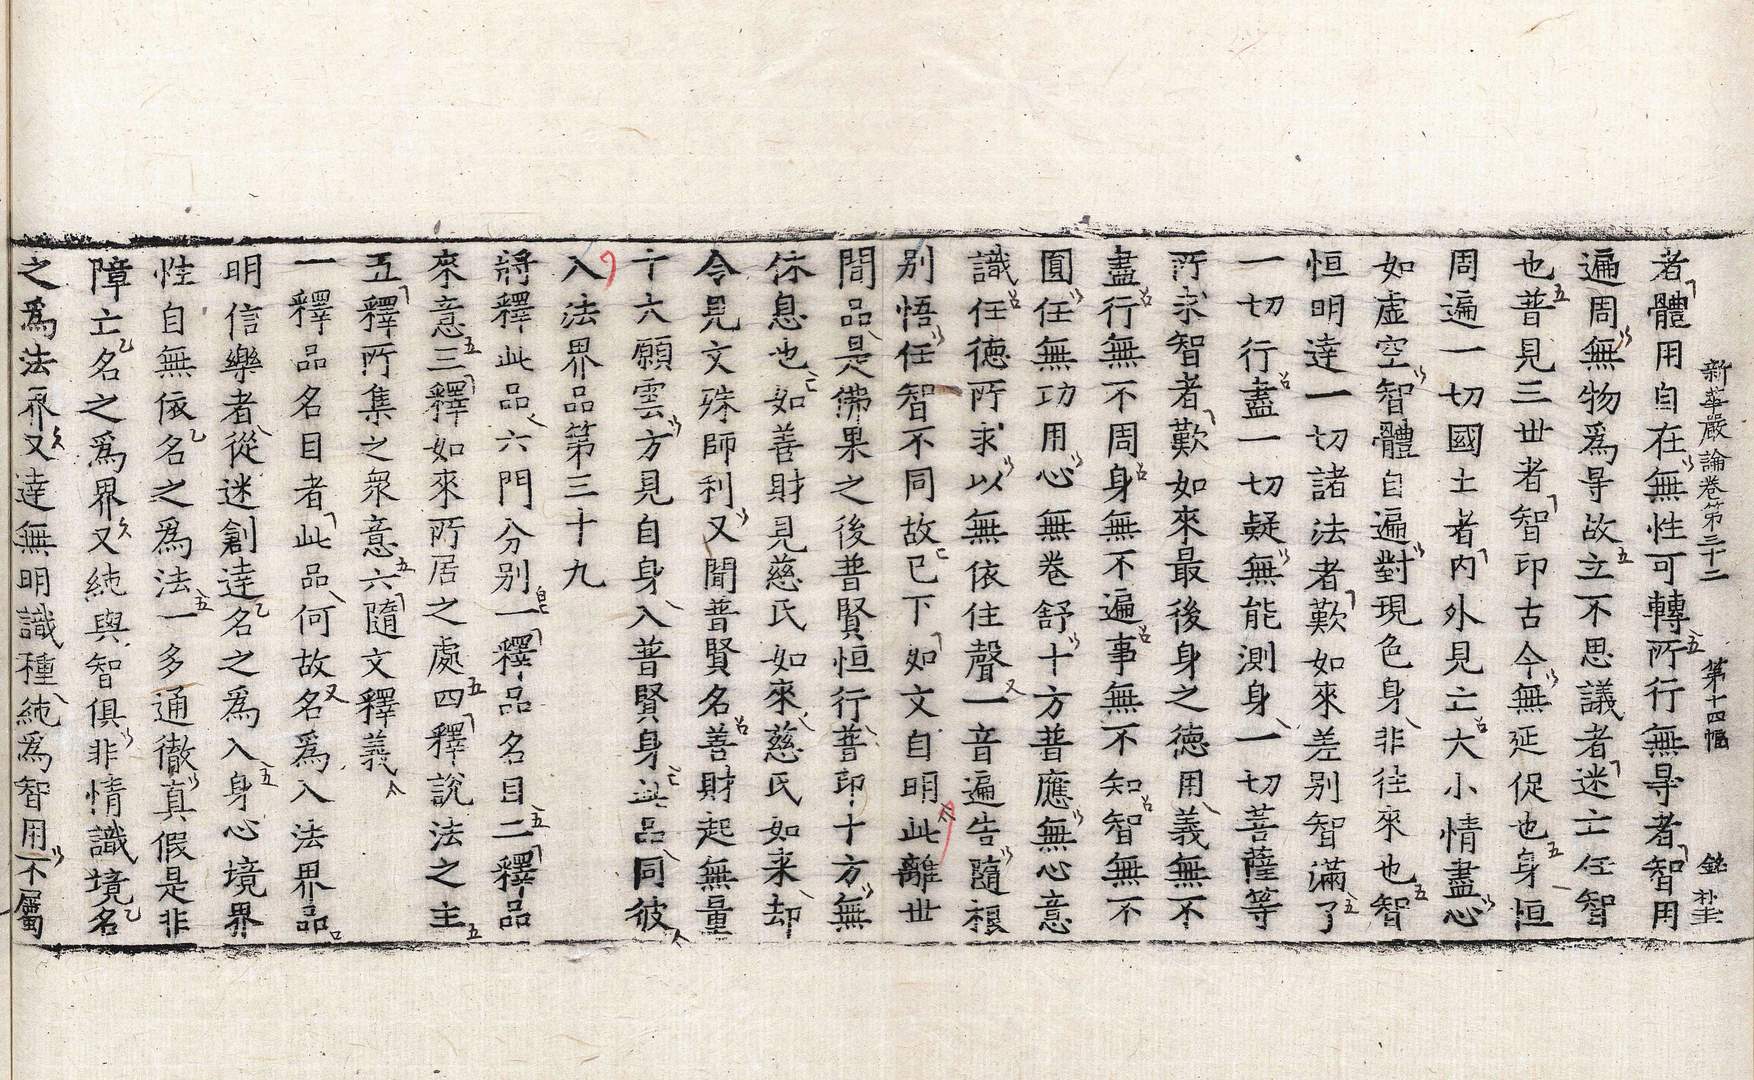 新華嚴論卷第三十二 第十四幅 銘 朴圭
者體用自在無性可轉所行無㝵者智用
遍周無物爲㝵故立不思議者迷亡任智
也普見三世者智印古今無延促也身恒
周遍一切國土者內外見亡大小情盡心
如虛空智體自遍對現色身非往來也智
恒明達一切諸法者歎如來差别智滿了
一切行盡一切疑無能測身一切菩薩等
所求智者歎如來最後身之德用義無不
盡行無不周身無不遍事無不知智無不
圎任無功用心無卷舒十方普應無心意
識任德所求以無依住聲一音遍告隨根
别悟任智不同故已下如文自明此離世
間品是佛果之後普賢恒行普印十方無
休息也如善財見慈氏如來慈氏如来却
令見文殊師利又聞普賢名善財起無量
十六願雲方見自身入普賢身此品同彼
入法界品第三十九
將釋此品六門分别一釋品名目二釋品
來意三釋如來所居之處四釋說法之主
五釋所集之衆意六隨文釋義
一釋品名目者此品何故名爲入法界品
明信樂者從迷創達名之爲入身心境界
性自無依名之爲法一多通徹真假是非
障亡名之爲界又純與智俱非情識境名
之爲法界又達無明識種純爲智用不屬